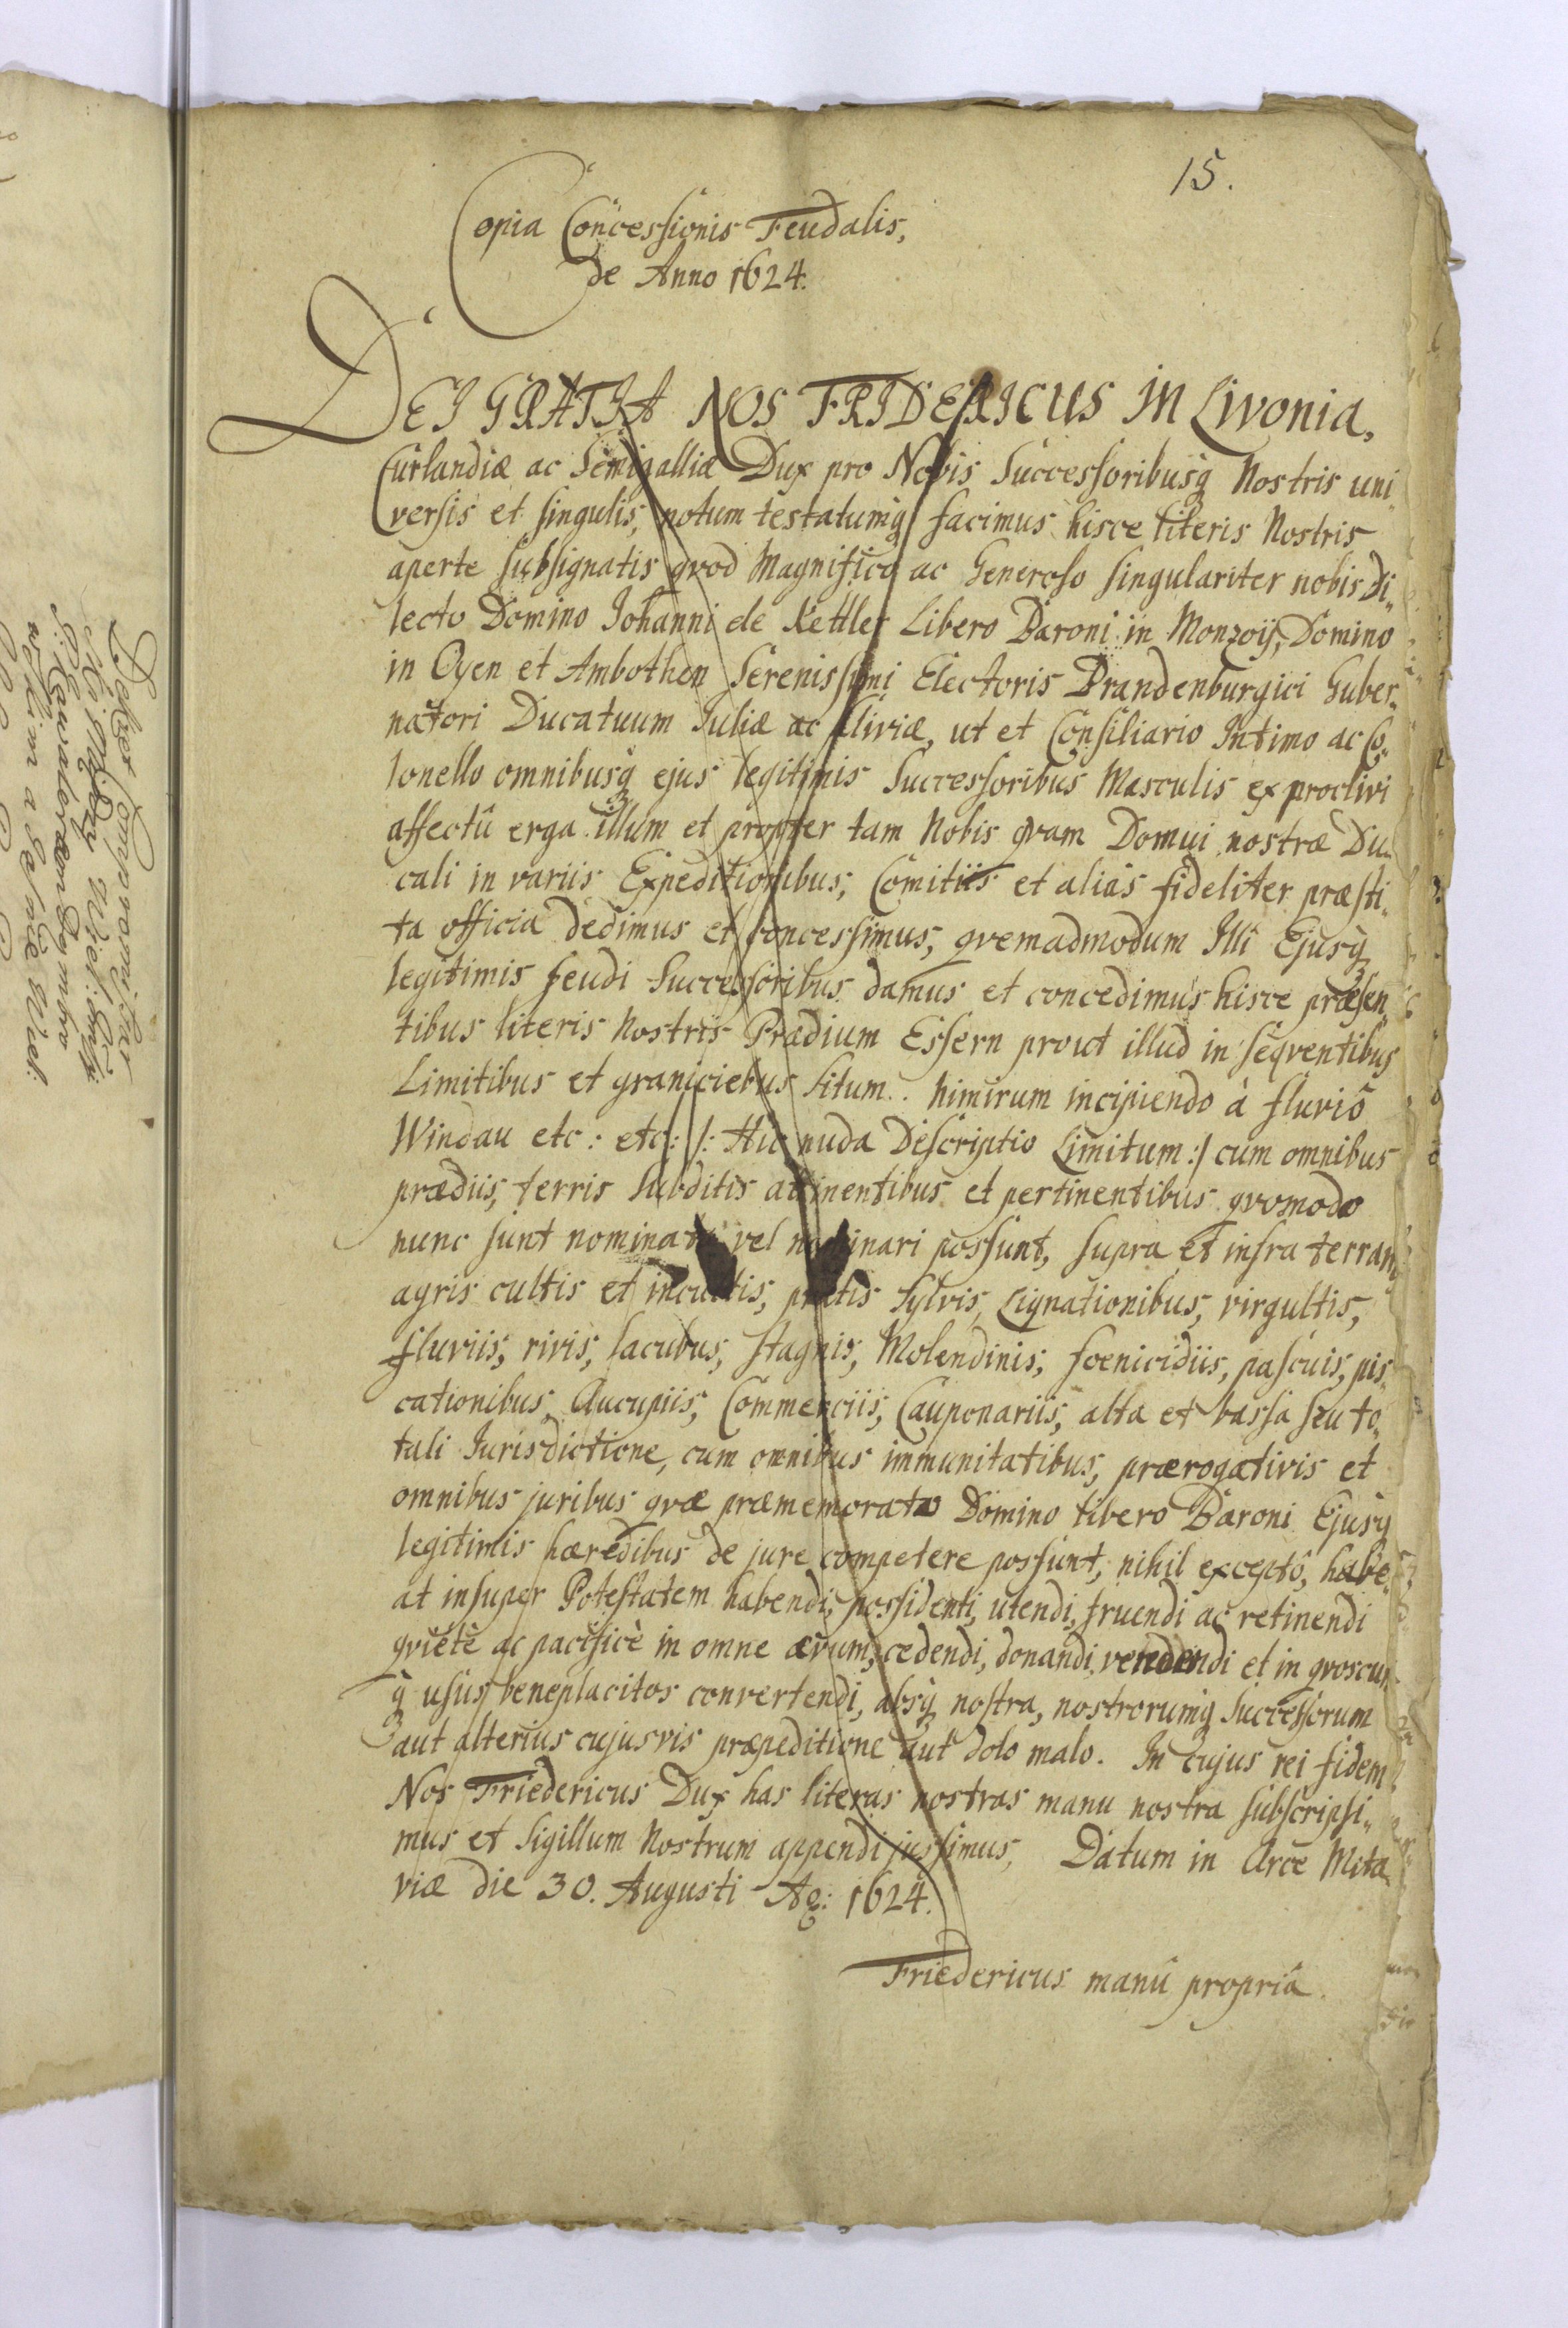 15.
Copia Concessionis Feudalis,
de Anno 1624.
DEI GRATIA NOS FRIDERICUS IN Livonia,
Curlandiæ ac Semigalliæ Dux pro Nobis Successoribusq Nostris uni
versis et singulis, notum testatumq facimus hisce literis Nostris
aperte subsignatis qvod Magnifico ac Generoso singulariter nobis di„
lecto Domino Johanni de Kettler Libero Baroni in Monzoÿ, Domino
in Oyen et Ambothen Serenissimi Electoris Brandenburgici Guber„
natori Ducatuum Juliæ ac Cliviæ, ut et Consiliario Intimo ac Co„
lonello omnibusq ejus legitimis Successoribus Masculis ex proclivi
affectû erga illum et propter tam Nobis qvam Domui nostræ Du„
cali in variis Expeditionibus, Comitiis et aliàs fideliter præsti„
ta officia dedimus et concessimus, qvemadmodum Illi Ejusq
legitimis feudi Successoribus damus et concedimus hisce præsen„
tibus literis Nostris Prædium Essern prout illud in seqventibus
Limitibus et graniciebus situm. nimirum incipiendo à fluviô
Windau etc: etc: /: Hic nuda Descriptio Limitum :/ cum omnibus
prædiis, terris subditis attinentibus et pertinentibus qvomodo
nunc sunt nominata vel nominari possunt, supra et infra terram
agris cultis et incultis, pratis Sylvis, Lignationibus, virgultis,
fluviis, rivis, lacubus, stagnis, Molendinis, foenicidiis, pascuis, pis„
cationibus, Aucupiis, Commerciis, Cauponariis, alta et bassa seu to„
tali Jurisdictione, cum omnibus immunitatibus, prærogativis et
omnibus juribus qvæ præmemorato Domino libero Baroni Ejusq
legitimis hæredibus de jure competere possunt, nihil exceptô, habe„
at insuper Potestatem habendi, possidenti, utendi, fruendi ac retinendi
qviétè ac pacificè in omne ævum, cedendi, donandi, vendendi et in qvoscun
q usus beneplacitos convertendi, absq nostra, nostrorumq Successorum
aut alterius cujusvis præpeditione aut dolo malo. In cujus rei fidem
Nos Friedericus Dux has literas nostras manu nostra subscripsi„
mus et Sigillum Nostrum appendi jussimus, Datum in Arce Mita„
viæ die 30. Augusti Aō: 1624.
Friedericus manû propriâ.